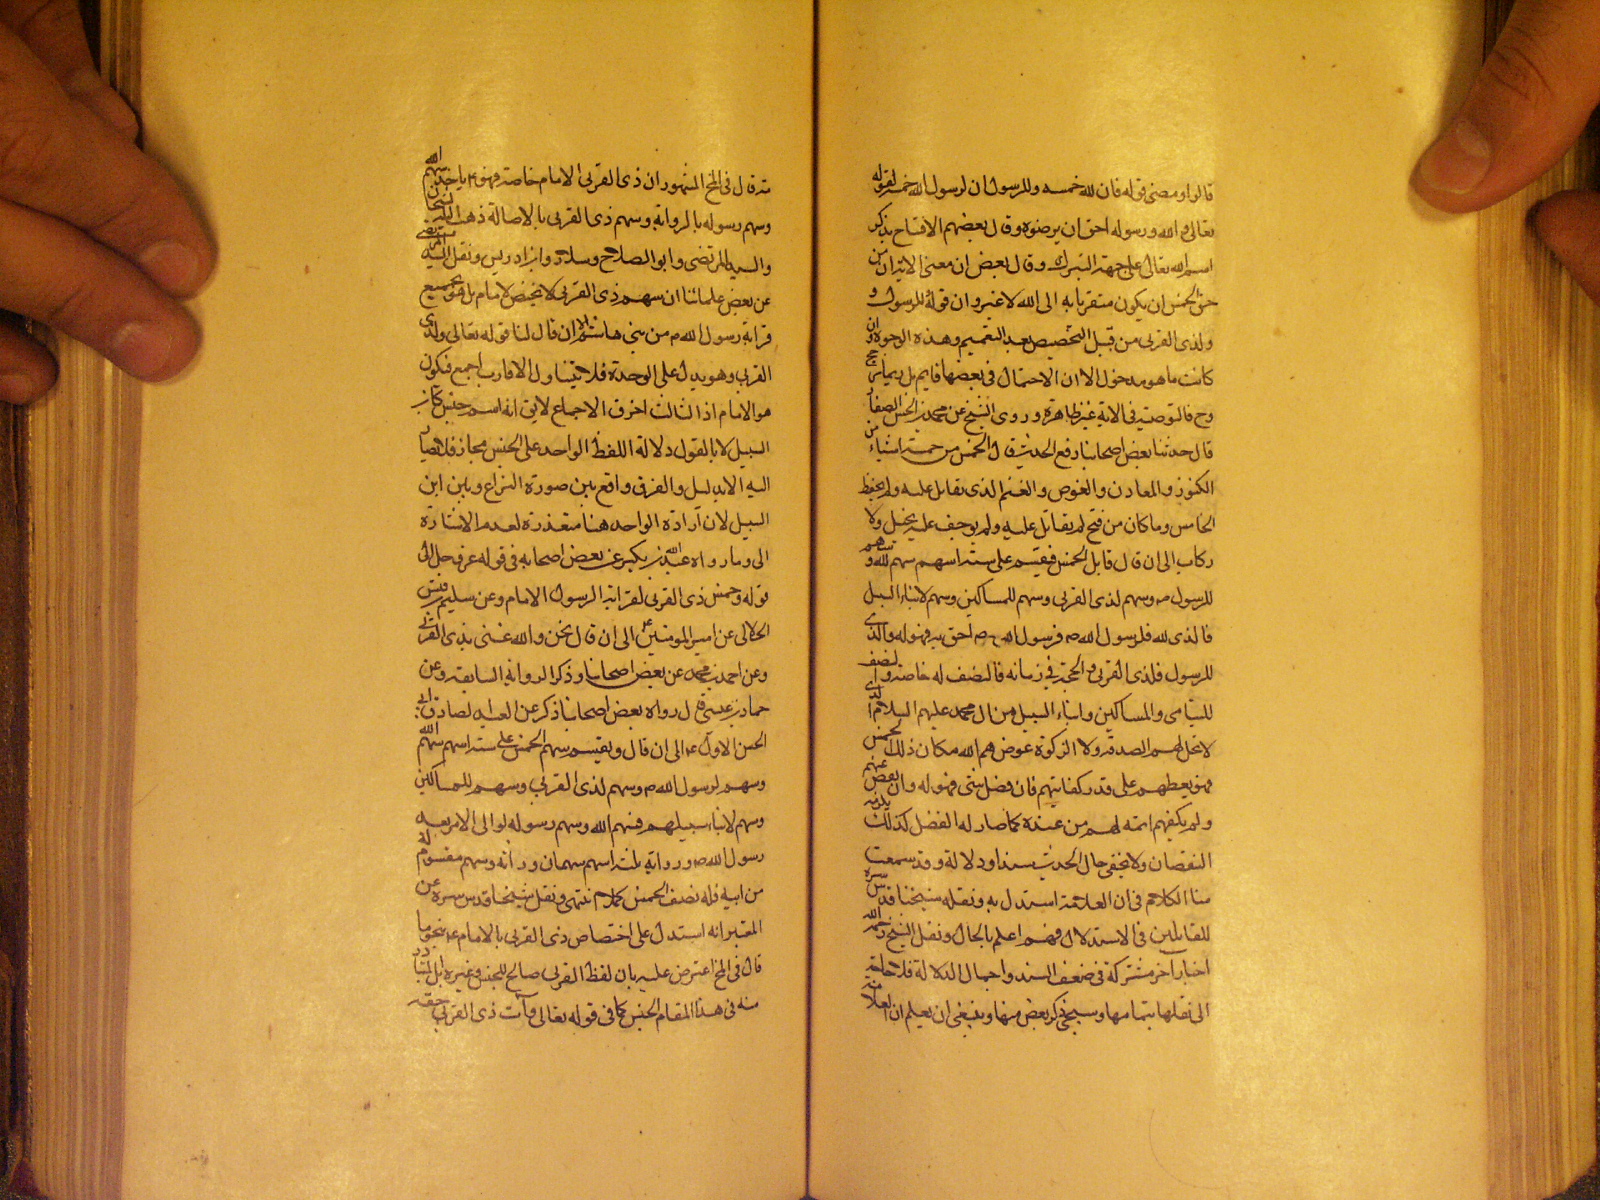 قالوا ومضى قوله فان لله خمسه وللرسول ان لرسول الله خمسه لقوله
تعالى والله ورسوله احق ان يرضوه وقال بعضهم الافتتاح بذكر
اسم الله تعالى على جهة التبرك وقال بعض ان معنى الاية ان من
حق الخمس ان يكون متقربا به الى الله لا غير وان قوله للرسول و
ولذى القربى من قبيل التخصيص بعد التعميم وهذه الوجوه وان
كانت ما هو مدخول الا ان الاحتمال فى بعضها قايم بل ربما يرجح
وح فالتوصية فى الاية غير ظاهرة وروى الشيخ عن محمد بن الحسن الصفار
قال حدثنا بعض اصحابنا رفع الحديث قال الخمس من خمسة اشياء من
الكنوز والمعادن والغوص والمغنم الذى يقاتل عليه ولم يحفظ
الخامس وما كان من فتح لم يقاتل عليه ولم يوجف عليه بخيل ولا
ركاب الى ان قال فاما الخمس فيقسم على ستة اسهم سهم لله وسهم
للرسول ص وسهم لذى القربى وسهم للمساكين وسهم لابناء السبيل
فالذى لله فلرسول الله ص فرسول الله ص احق به فهو له والذى
للرسول فلذى القربى والحجة فى زمانه فالنصف له خاصة والنصف
لليتامى والمساكين وابناء السبيل من ال محمد عليهم السلام الذى
لا تحل لهم الصدقة ولا الزكوة عوضهم الله مكان ذلك بخمس
فهو يعطهم على قدر كفايتهم فان فضل شئ فهو له وان نقص عنهم
ولم يكفهم اتمه لهم من عنده كما صار له الفضل كذلك يلزمه
النقصان ولا يخفى حال الحديث سندا ودلالة وقد سمعت
منا الكلام فى ان العلامة استدل به ونقله شيخنا قدس سره
للقايلين فى الاستدلال فهم اعلم بالحال ونقل الشيخ رحمه الله
اخبارا اخر مشتركة فى ضعف السند واجمال الدلالة فلا حاجة
الى نقلها بتمامها وسيجئ ذكر بعض منها وينبغى ان يعلم ان العلامة
قال فى المخ المشهور ان ذى القربى الامام خاصة فهو ع ياخذ سهم الله
وسهم رسوله بالرواية وسهم ذى القربى بالاصالة ذهب اليه الشيخان
والسيد المرتضى وابو الصلاح وسلار وابن ادريس ونقل السيد المرتضى
عن بعض علمائنا ان سهم ذى القربى لا يختص لامام بل هو لجميع
قرابة رسول الله ص من بنى هاشم الا ان قال لنا قوله تعالى ولذى
القربى وهو يدل على الوحدة فلا يتناول الاقارب اجمع فيكون
هو الامام اذ الثالث اخرق الاجماع لايق انه اسم جنس كابن
السبيل لانا نقول دلالة اللفظ الواحد على الجنس مجاز فلا يصار
اليه الا بدليل والفرق واقع بين صورة النزاع وبين ابن
السبيل لان ارادة الواحد هنا متعذرة لعدم الاشارة
الى وما رواه عبد الله بن بكير عن بعض اصحابه فى قوله عز وجل الى
قوله وخمس ذى القربى لقرابة الرسول الامام وعن سليم بن قيس
الهلالى عن امير المومنين ع الى ان قال نحن والله عنى بذى القربى
وعن احمد بن محمد عن بعض اصحابنا وذكر الرواية السابقة وعن
حماد بن عيسى قال رواه بعض اصحابنا ذكر عن العبد الصادق ابى
الحسن الاول ع الى ان قال ويقسم سهم الخمس على ستة اسهم سهم الله
وسهم لرسول الله ص وسهم لذى القربى وسهم للمساكين
وسهم لابناء سبيلهم فسهم الله وسهم رسوله لوالى الامر بعد
رسول الله ص وراثة ثلثة اسهم سهمان وراثة وسهم مقسوم له
من ابيه فله نصف الخمس كملا م نتهى ونقل شيخنا قدس سره عن
المعتبر انه استدل على اختصاص ذى القربى بالامام ع بنحو ما
قال فى المخ اعترض عليه بان لفظ القربى صالح للجنس وغيره بل المتبادر
منه فى هذا المقام الجنس كما فى قوله تعالى وآت ذى القربى حقه